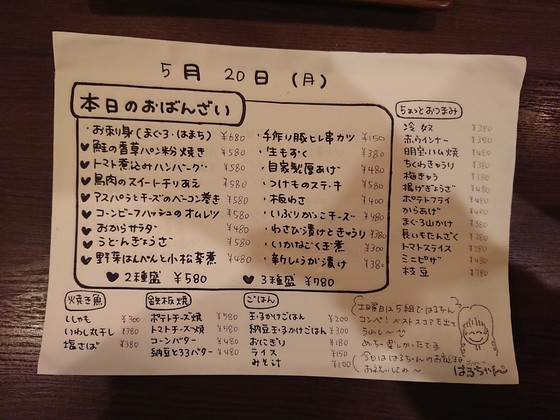 5月 20日 (月)
本日のおばんざい
・お刺身(まぐろ・はまち) ¥680
♥鮭の香草パン粉焼き ¥580
♥トマト煮込みハンバーグ ¥580
♥鳥肉のスイートチリあえ ¥580
♥アスパラとチーズのベーコン巻き ¥580
♥コーンビーフハッシュのオムレツ ¥580
♥おからサラダ ¥480
♥うどんぎょうざ ¥580
♥野菜はんぺんと小松菜煮 ¥480
・手作り豚ヒレ串カツ ¥150
・生もずく ¥380
・自家製厚あげ ¥480
・つけものステーキ ¥580
・板わさ ¥400
・いぶりがっこチーズ ¥480
・わさび漬けときゅうり ¥380
・いかなごくぎ煮 ¥300
・新しょうが漬け ¥380
♥2種盛 ¥580 ♥3種盛 ¥780
ちょっとおつまみ
冷奴 ¥380
赤ウインナー ¥380
明宝ハム焼 ¥480
ちくわきゅうり ¥380
梅きゅう ¥380
揚げぎょうざ ¥480
ポテトフライ ¥480
からあげ ¥480
まぐろ山かけ ¥580
長いもたんざく ¥380
トマトスライス ¥380
ミニピザ ¥480
枝豆 ¥380
焼き魚
ししゃも ¥300
いわし丸干し ¥380
塩さば ¥380
鉄板焼
ポテトチーズ焼 ¥580
トマトチーズ焼 ¥580
コーンバター ¥480
納豆とろろバター ¥480
ごはん
玉子かけごはん ¥200
納豆玉子かけごはん ¥300
おにぎり ¥150
ライス ¥150
みそ汁 ¥100
土曜日は5組ではるちゃん
コンペ!ベストスコアも出て
うれし〜
めっちゃ楽しかったでる
今日ははるちゃんのお誕生日
お祝いしよ〜
はるちゃん